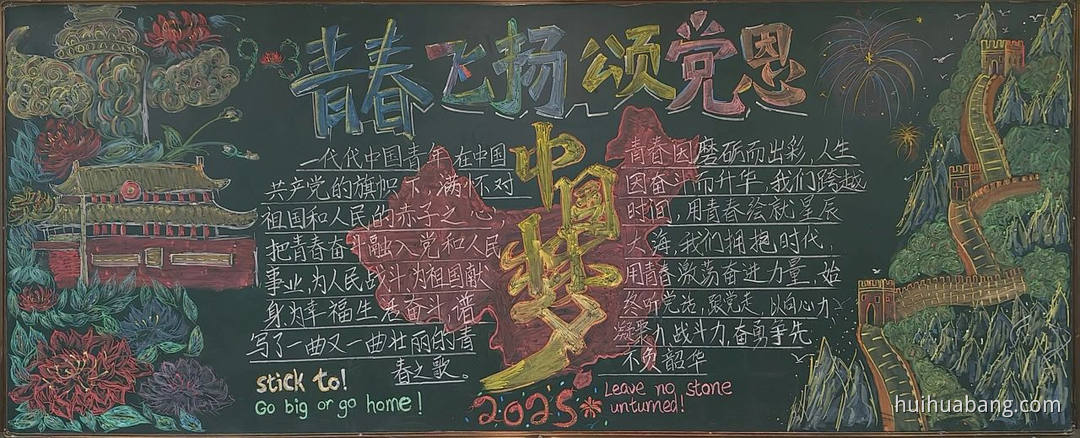 青春飞扬颂党恩
一代代中国青年在中国
共产党的旗帜下，满怀对
祖国和人民的赤子之心，
把青春奋斗融入党和人民
事业，为人民战斗，为祖国献
身为幸福生活奋斗，谱
写了一曲又一曲壮丽的青
春之歌。
中国梦
青春因磨砺而出彩，人生
因奋斗而升华，我们跨越
时间，用青春绘就星辰
大海，我们拥抱时代，
用青春激荡奋进力量，始
终听党话，跟党走，以向心力
凝聚力，战斗力，奋勇争先
不负韶华
stick to!
Go big or go home!
2025
Leave no stone
unturned!
huihuabang.com